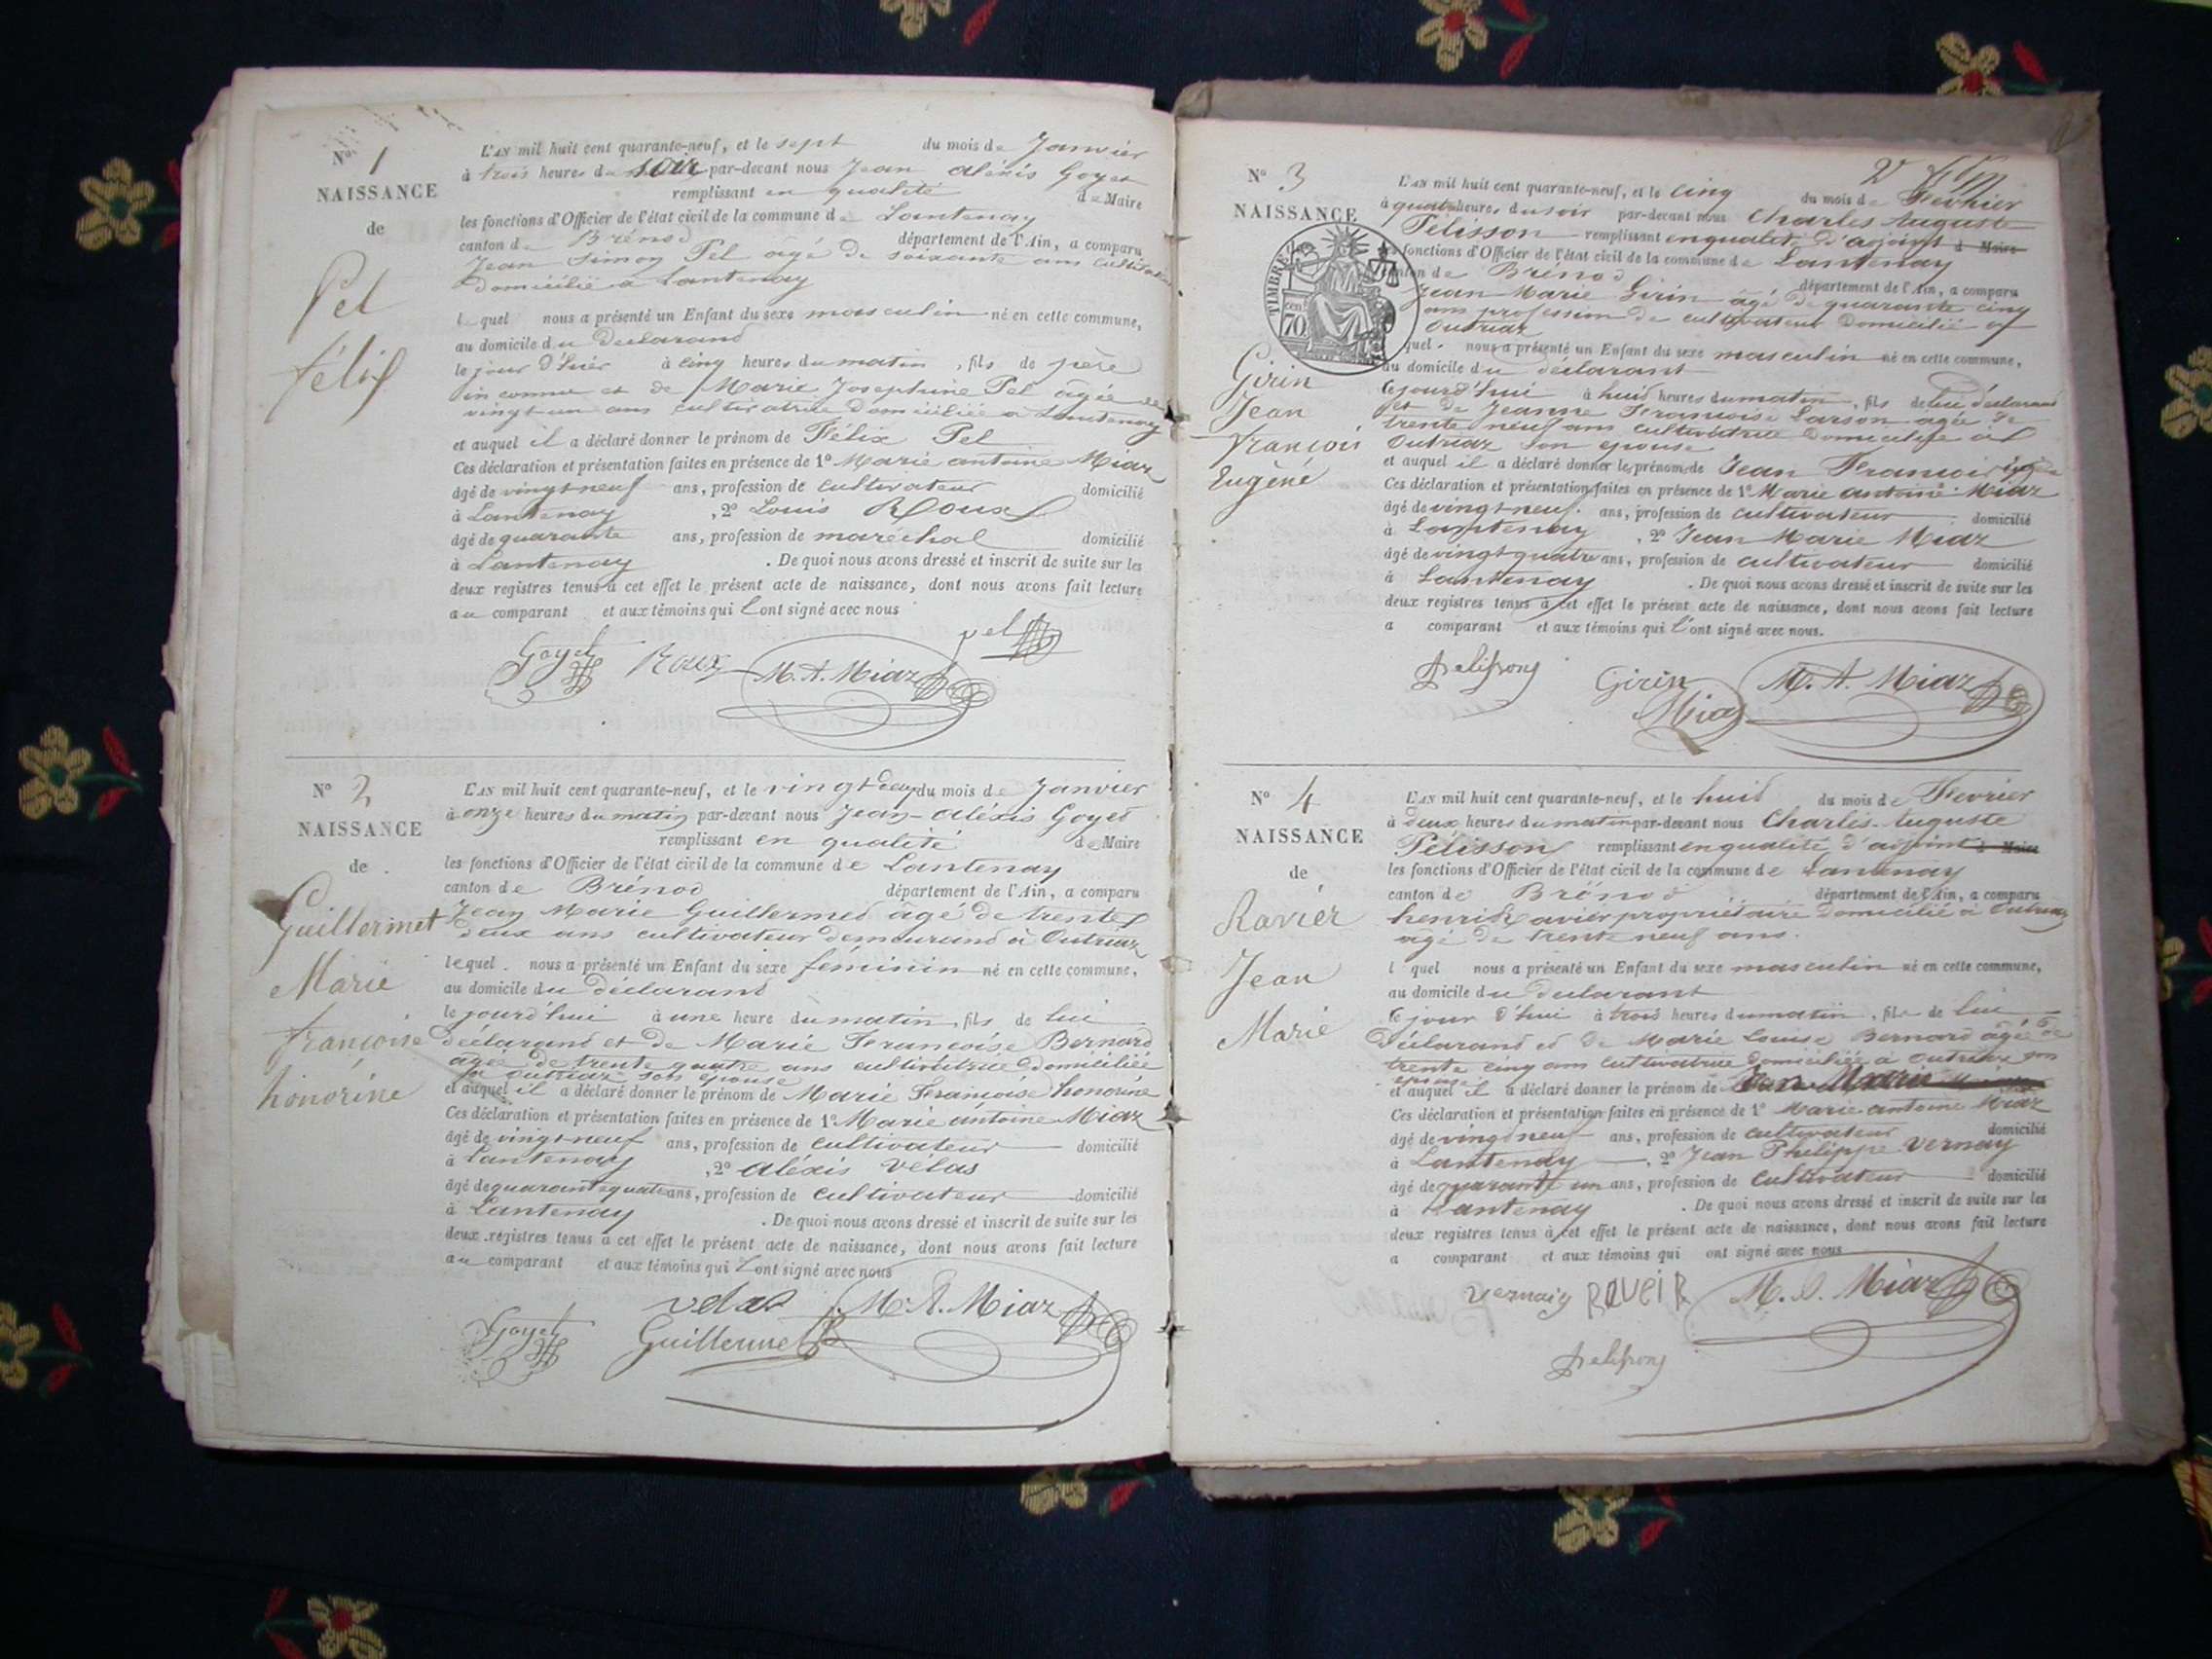 N° 1
NAISSANCE
de
Pel
félix
L'AN mil huit cent quarante-neuf, et le sept du mois de Janvier
à trois heures du soir par-devant nous Jean aléxis Goyet
remplissant en qualité de Maire
les fonctions d'Officier de l'état civil de la commune de Lantenay
canton de Brénod département de l'Ain, a comparu
Jean Simon Pel âgé de soixante ans cultivateur
domicilié a Lantenay
lequel nous a présenté un Enfant du sexe masculin né en cette commune,
au domicile du Declarand
le jour d'hier à cinq heures du matin, fils de père
inconnu et de Marie Josephine Pel âgée de
vingt un ans cultivatrice domiciliée a Lantenay
et auquel il a déclaré donner le prénom de Félix Pel
Ces déclaration et présentation faites en présence de 1° Marie antoine Miaz
âgé de vingt neuf ans, profession de cultivateur domicilié
à Lantenay, 2° Louis Roux
âgé de quarante ans, profession de maréchal domicilié
à Lantenay. De quoi nous avons dressé et inscrit de suite sur les
deux registres tenus à cet effet le présent acte de naissance, dont nous avons fait lecture
au comparant et aux témoins qui l'ont signé avec nous
pel
Goyet Roux M. A. Miaz
N° 2
NAISSANCE
de
Guillermet
Marie
françoise
honorine
L'AN mil huit cent quarante-neuf, et le vingt deux du mois de Janvier
à onze heures du matin par-devant nous Jean aléxis Goyed
remplissant en qualité de Maire
les fonctions d'Officier de l'état civil de la commune de Lantenay
canton de Brénod département de l'Ain, a comparu
Jean Marie Guillermed âgé de trente
deux ans cultivateur demeurand à Outriaz
lequel nous a présenté un Enfant du sexe féminin né en cette commune,
au domicile du déclarand
le jourd'hui à une heure du matin, fils de lui
déclarand et de Marie Françoise Bernard
âgée de trente quatre ans cultivatrice domiciliée
a outriaz son épouse
et auquel il a déclaré donner le prénom de Marie Françoise honorine
Ces déclaration et présentation faites en présence de 1° Marie antoine Miaz
âgé de vingt neuf ans, profession de cultivateur domicilié
à Lantenay, 2° aléxis Vélas
âgé de quarante quatre ans, profession de cultivateur domicilié
à Lantenay. De quoi nous avons dressé et inscrit de suite sur les
deux registres tenus à cet effet le présent acte de naissance, dont nous avons fait lecture
au comparant et aux témoins qui l'ont signé avec nous
velas M. A. Miaz
Goyet Guillermet
N° 3
NAISSANCE
TIMBRE
cen. 70
Girin
Jean
françois
Eugéne
L'AN mil huit cent quarante-neuf, et le cinq du mois de Fevrier
à quatre heures du soir par-devant nous Charles Auguste
Pélisson remplissant en qualité d'adjoint d Maire
les fonctions d'Officier de l'état civil de la commune de Lantenay
canton de Brénod département de l'Ain, a comparu
Jean Marie Girin âgé de quarante cinq
ans profession de cultivateur domicilié a
Outriaz
quel nous a présenté un Enfant du sexe masculin né en cette commune,
au domicile du déclarant
le jourd'hui à huid heures du matin, fils de lui déclarand
et de Jeanne Françoise Larson agée de
trente neuf ans cultivatrice domiciliée a
Outriaz son epouse
et auquel il a déclaré donner le prénom de Jean François
Ces déclaration et présentation faites en présence de 1° Marie antoine Miaz
âgé de vingt neuf ans, profession de cultivateur domicilié
à Lantenay, 2° Jean Marie Miaz
âgé de vingt quatre ans, profession de cultivateur domicilié
à Lantenay. De quoi nous avons dressé et inscrit de suite sur les
deux registres tenus à cet effet le présent acte de naissance, dont nous avons fait lecture
a comparant et aux témoins qui l'ont signé avec nous.
Pelisson Girin M. A. Miaz
Miaz
N° 4
NAISSANCE
de
Ravier
Jean
Marie
L'AN mil huit cent quarante-neuf, et le huid du mois de Fevrier
à deux heures du matin par-devant nous Charles Auguste
Pélisson remplissant en qualité d'adjoint d Maire
les fonctions d'Officier de l'état civil de la commune de Lantenay
canton de Brénod département de l'Ain, a comparu
henri Ravier propriétaire domicilié à Outriaz
âgé de trente neuf ans.
l quel nous a présenté un Enfant du sexe masculin né en cette commune,
au domicile du declarant
le jour d'hui à trois heures du matin, fils de lui
déclarand et de Marie Louise Bernard âgée de
trente cinq ans cultivatrice domiciliée à outriaz son
epouse
et auquel il a déclaré donner le prénom de Jean Marie
Ces déclaration et présentation faites en présence de 1° Marie antoine Miaz
âgé de vingt neuf ans, profession de cultivateur domicilié
à Lantenay, 2° Jean Philippe Vernay
âgé de quarante un ans, profession de cultivateur domicilié
à Lantenay. De quoi nous avons dressé et inscrit de suite sur les
deux registres tenus à cet effet le présent acte de naissance, dont nous avons fait lecture
a comparant et aux témoins qui ont signé avec nous
Vernaiy RAVEIR M. A. Miaz
Pelisson